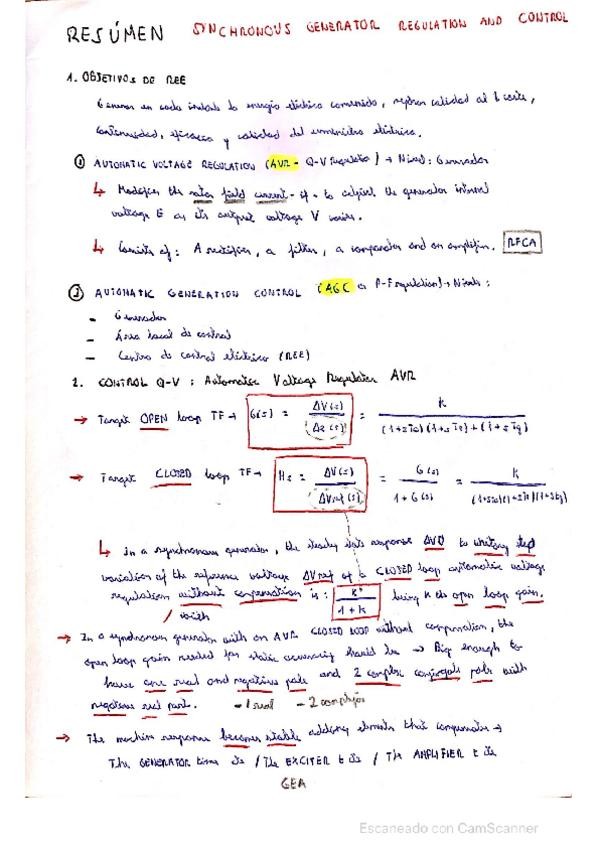 RESÚMEN SYNCHRONOUS GENERATOR REGULATION AND CONTROL
1. OBJETIVOS DE REE
Generar en cada instante la energía eléctrica consumida, calidad al coste,
continuidad, eficacia y calidad del suministro eléctrico.
① AUTOMATIC VOLTAGE REGULATION (AVR - Q-V Regulator) → Nivel: Generador
↳ Modifies the rotor field current - if - to adjust the generator internal
voltage E as its output voltage V varies.
↳ Consists of: A rectifier, a filter, a comparator and an amplifier. RFCA
② AUTOMATIC GENERATION CONTROL (AGC o P-F regulation) → Niveles:
- Generador
- Área local de control
- Centro de control eléctrico (REE)
2. CONTROL Q-V: Automatic Voltage Regulator AVR
→ Target OPEN loop TF → G(s) = ΔV(s) / Δe(s) = K / (1+sTa)(1+sTe)+(1+sTg)
→ Target CLOSED loop TF → Hs = ΔV(s) / ΔVref(s) = G(s) / 1+G(s) = K / (1+sTa)(1+sTe)(1+sTg)
↳ In a synchronous generator, the steady state response ΔV0 to unitary step
variation of the reference voltage ΔVref of a CLOSED loop automatic voltage
regulation without compensation is: K / 1+K being K the open loop gain.
/ with
→ In a synchronous generator with an AVR CLOSED LOOP without compensation, the
open loop gain needed for static accuracy should be → Big enough to
have one real and negative pole and 2 complex conjugate poles with
negative real part. - 1 real - 2 complejos
→ The machine response becomes stable adding elements that compensate →
The GENERATOR time / The EXCITER / The AMPLIFIER
GEA
Escaneado con CamScanner